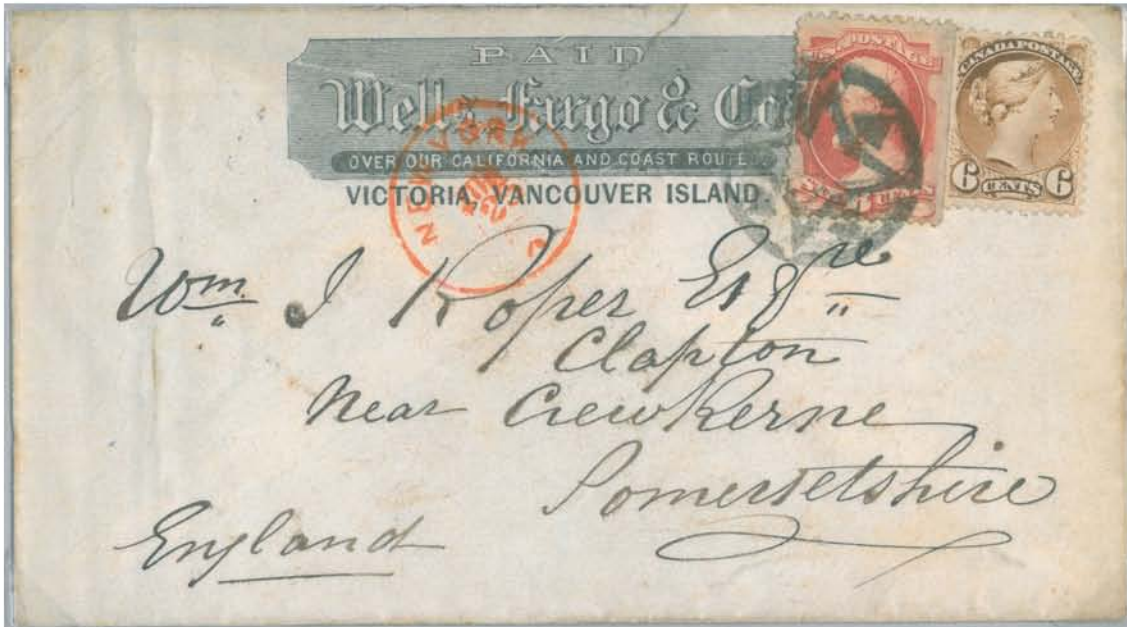 PAID
Wells, Fargo & Co
OVER OUR CALIFORNIA AND COAST ROUTE.
VICTORIA, VANCOUVER ISLAND.
NEW YORK
POSTAGE
CENTS
CANADA POSTAGE
6 CENTS 6
Wm. J Roper Esqre
Clapton
Near Crewkerne
Somersetshire
England